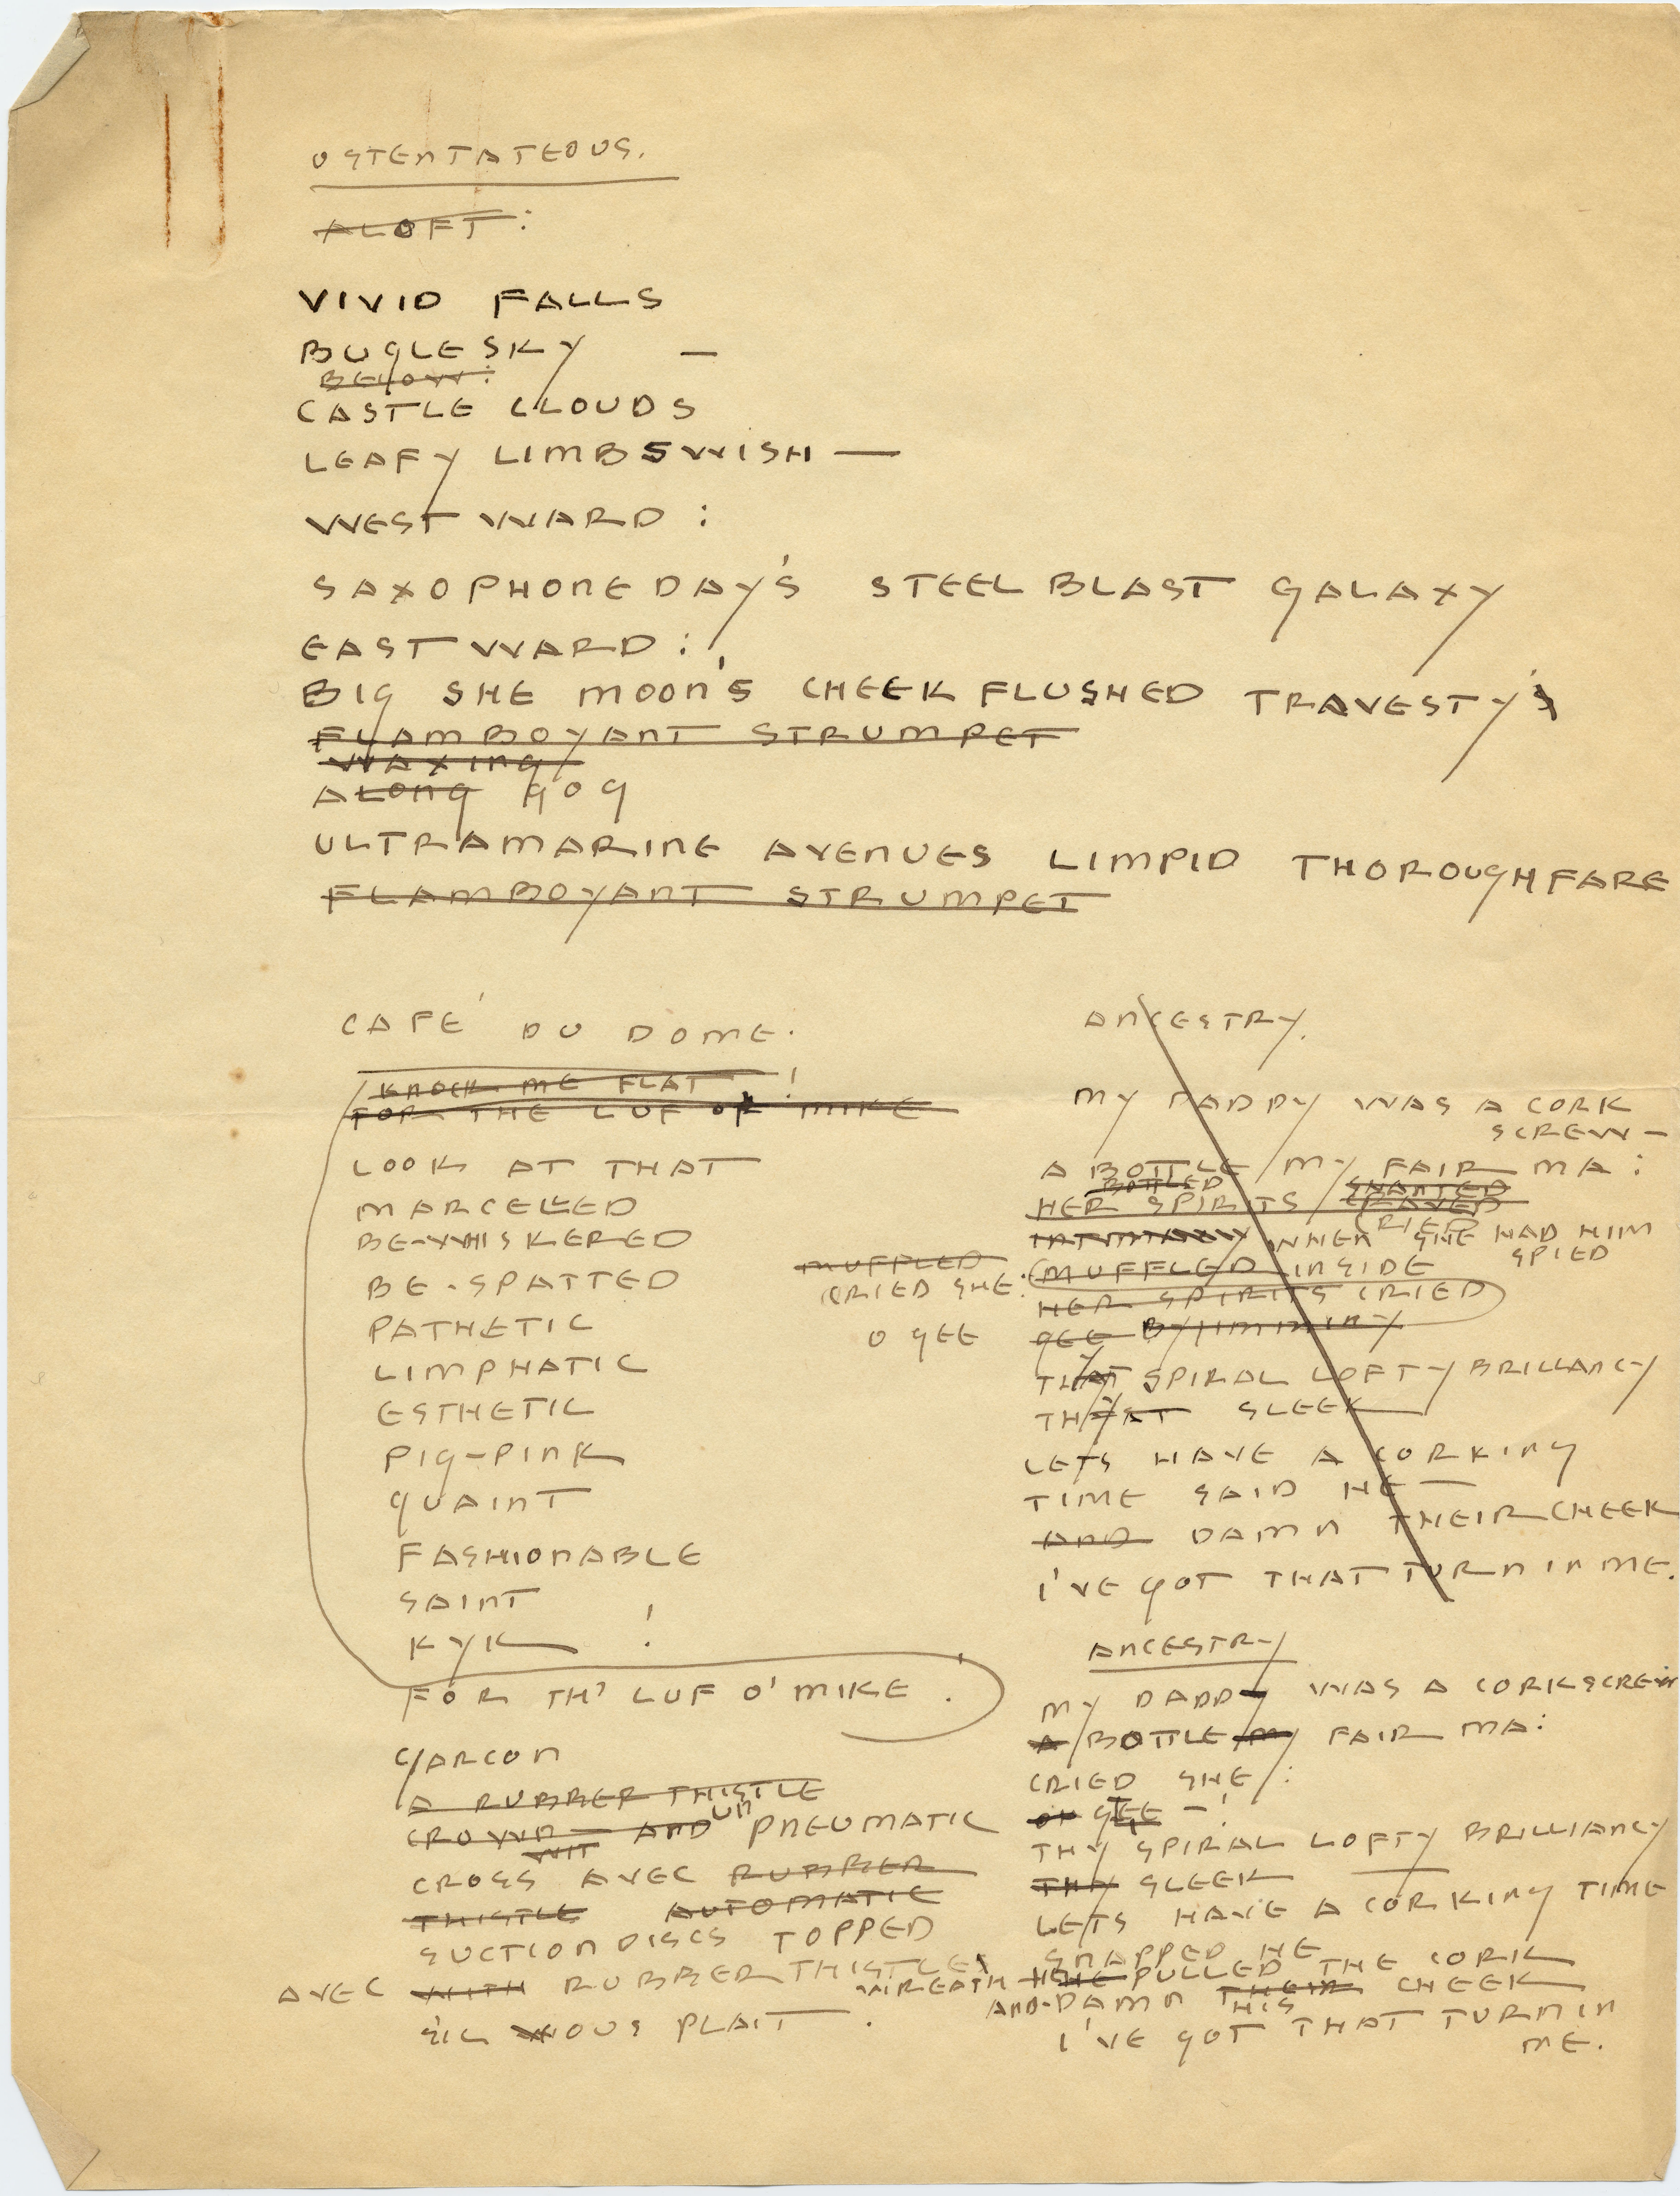 OSTENTATEOUS.
ALOFT:
VIVID FALLS
BUGLE SKY —
BELOW:
CASTLE CLOUDS
LEAFY LIMBS WISH —
WESTWARD:
SAXOPHONE DAY'S STEEL BLAST GALAXY
EASTWARD:
BIG SHE MOON'S CHEEK FLUSHED TRAVESTY'S
FLAMBOYANT STRUMPET
WAXING
ALONG GOG
ULTRAMARINE AVENUES LIMPID THOROUGHFARE
FLAMBOYANT STRUMPET
CAFÉ DU DOME.
KNOCK ME FLAT!
FOR THE LUF OF MIKE
LOOK AT THAT
MARCELLED
BE-WHISKERED
BE-SPATTED
PATHETIC
LIMPHATIC
ESTHETIC
PIG-PINK
QUAINT
FASHIONABLE
SAINT
KYK!
FOR TH' LUF O' MIKE.
GARCON
A RUBBER THISTLE
CROWN — AND UN PNEUMATIC
WIT
CROSS AVEC RUBBER
THISTLE AUTOMATIC
SUCTION DISCS TOPPED
AVEC WITH RUBBER THISTLE WREATH
S'IL VOUS PLAIT.
ANCESTRY.
MY DADDY WAS A CORK
SCREW —
A BOTTLE MY FAIR MA:
BOTTLED
HER SPIRITS CRAVED
CRIED
WHEN SHE HAD HIM
SPIED
MUFFLED
CRIED SHE: MUFFLED INSIDE
HER SPIRITS CRIED
O GEE GEE BY JIMMINY
THAT SPIRAL LOFTY BRILLANCY
THAT SLEEK
LETS HAVE A CORKING
TIME SAID HE —
AND DAMN THEIR CHEEK
I'VE GOT THAT TURN IN ME.
ANCESTRY
MY DADDY WAS A CORKSCREW
A BOTTLE MY FAIR MA:
CRIED SHE:
GEE —!
THY SPIRAL LOFTY BRILLIANCY
THY SLEEK —
LETS HAVE A CORKING TIME
SNAPPED HE
HE PULLED THE CORK
AND DAMN THEIR HIS CHEEK
I'VE GOT THAT TURN IN
ME.